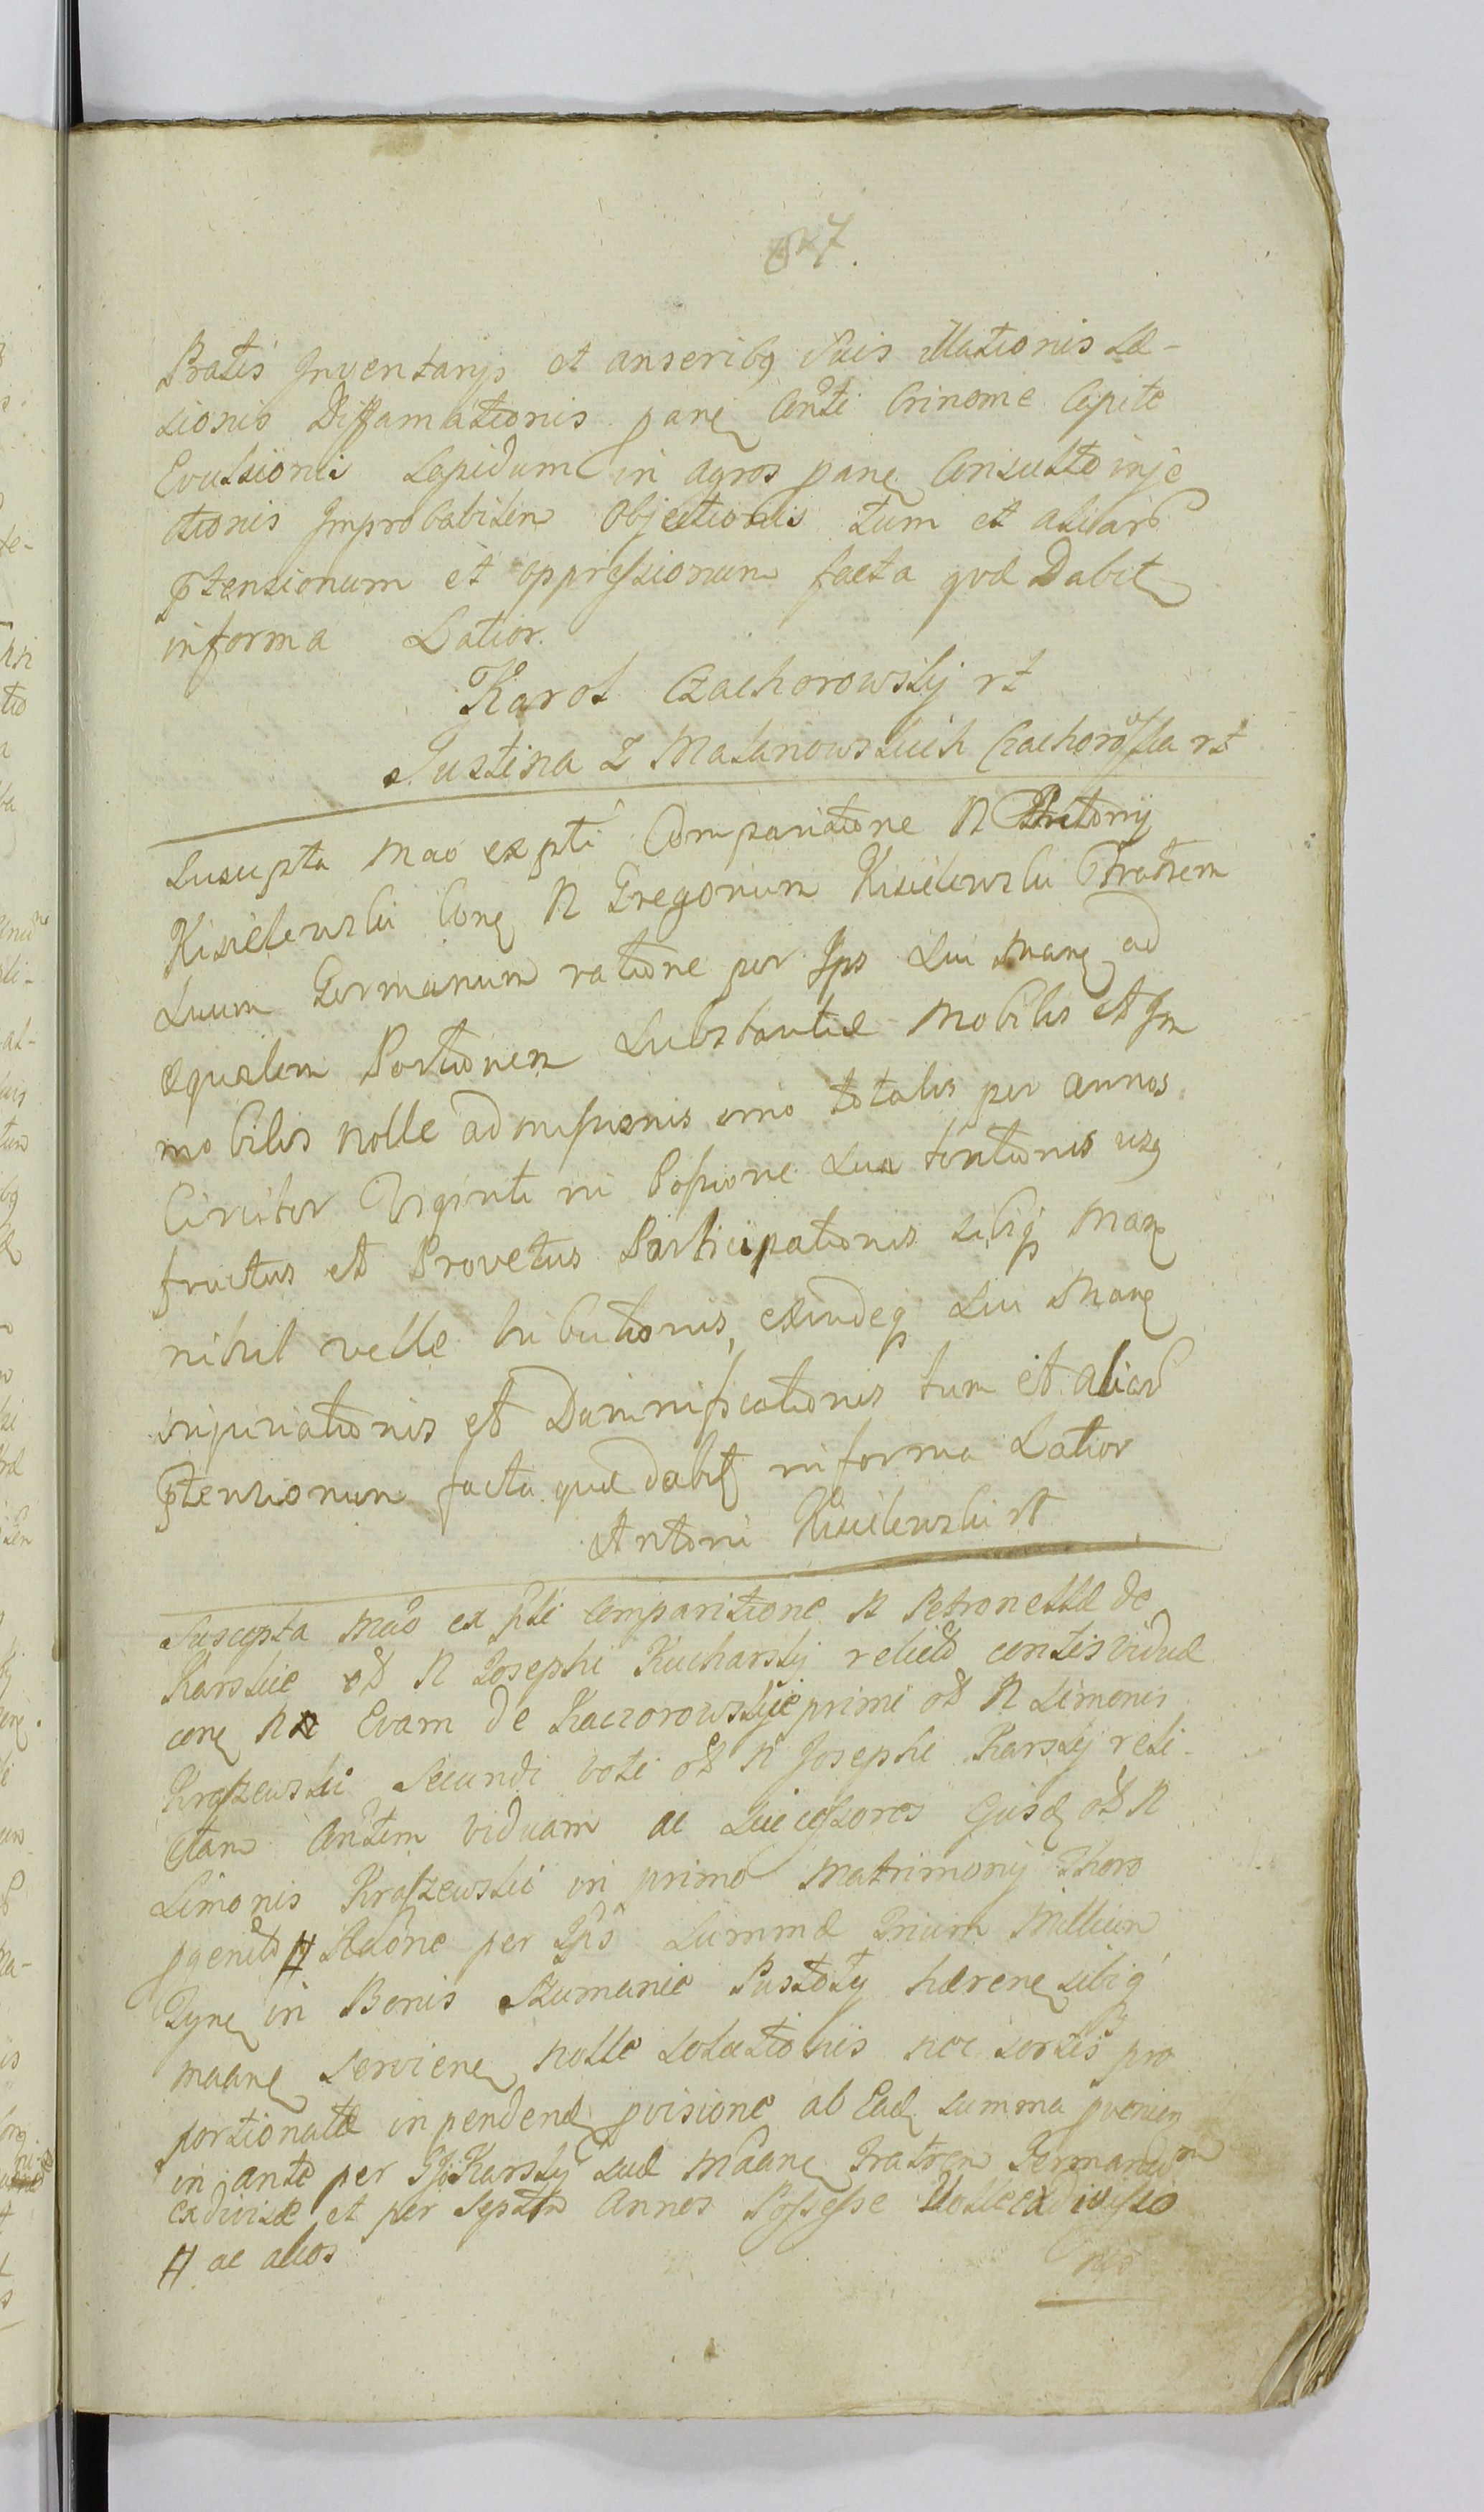 Pratis Inventarys et anseribq Suis illationis Lae-
sionis Diffamationis panē Conti Crinome Capite
Evulsionis Lapidum in agros panē Consulto inje
ctionis Improbabilem Objectionis tum et aliarū
ptensionum et oppressionum facta qvae Dabit
informa Latior.
Karol Czachorowskij rt
Justina z Matanowskich Czachorowska rt
Suscepta mao ex pti Comparitione N Antonij
Kisielewski Conē N Gregorium Kisielewski Fratrem
Suum Germanum ratione per Ips Sui Manē ad
aequalem Portionem Substantiae Mobilis et Im
mobilis nolle admissionis imo totalis per annos
Circiter Viginti in Possione Sua tentionis usq
fructus et Provetus Participationis sibiq Manē
nihil velle tributionis, exindeq Sui Manē
injuriationis et Damnificationis tum et aliarū
ptensionum facta quae dabit informa Latior
Antoni Kisielewski rt
Suscepta mao ex pti Comparitione N Petronellae de
Karskie od N Josephi Kucharskij relictae contis viduae
conē N Evam de Kaczorowskie primi od N Simonis
Kraszewski Secundi voti od N Josephi Karskij reli-
ctam Contem viduam ac Successores Ejusd od N
Simonis Kraszewski in primo Matrimonij Thoro
pgenito # Raone per Ips Summae Trium Millium
Tynē in Bonis Szumanie Pustoty haerenē sibiq
maanē servienē nolle Solutionis nec sortis pro
portionatae inpendenē pvisione ab Ead summa pvenien
in ante per Karskij Suae Maanē Fratrem Germanum
exdivisae et per Septem Annos Possessae nolle exdivisio
nis
# ac alios